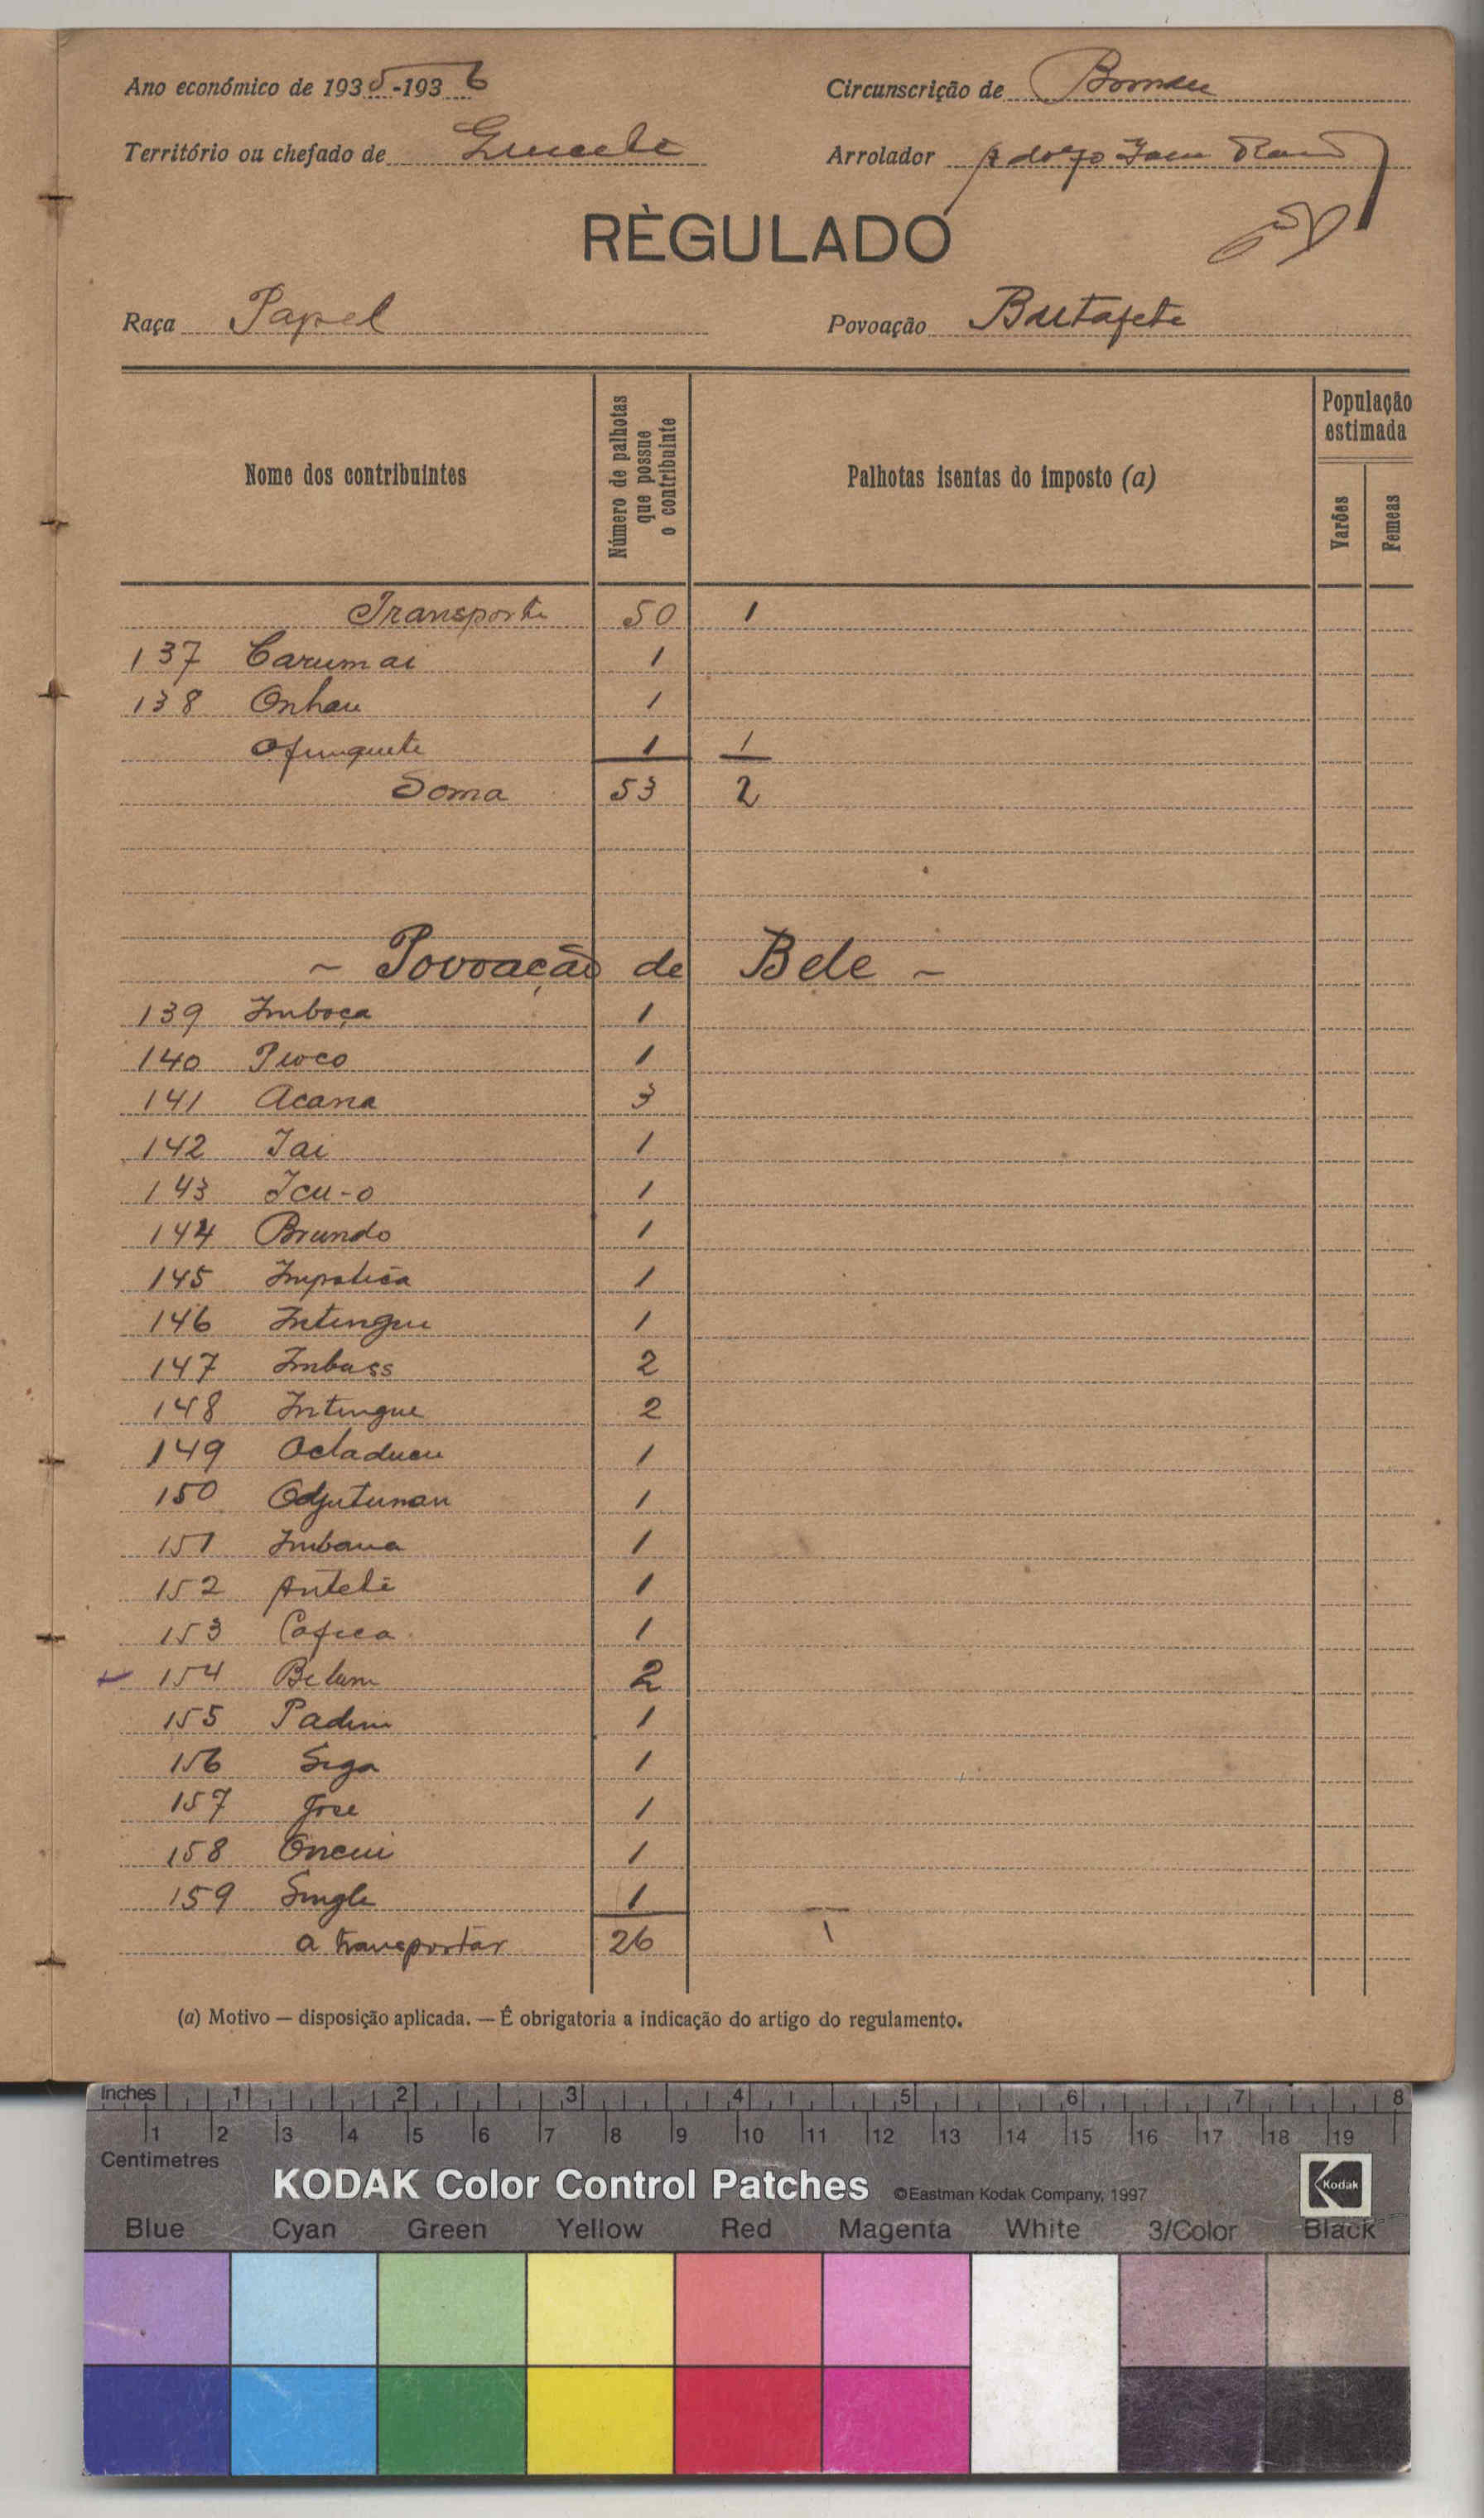 Ano económico de 1935-1936
Circunscrição de
Território ou chefado de
Arrolador Adolfo
RÈGULADO
Raça Papel
Povoação Butafete
Nome dos contribuintes
Número de palhotas que possue o contribuinte
Palhotas isentas do imposto (a)
População estimada
Varões
Femeas
Transporte 50 1
137 Carumai 1
138 Onhau 1
Ofunquete 1 1
Soma 53 2
~ Povoação de Bele ~
139 Imboça 1
140 Pioco 1
141 Acana 3
142 Iai 1
143 Icu-o 1
144 Brundo 1
145 1
146 Intingue 1
147 Imbass 2
148 Intingue 2
149 1
150 Odjutuman 1
151 Imbana 1
152 Antete 1
153 Cafeca 1
154 Belum 2
155 Padim 1
156 Siga 1
157 Jose 1
158 Oncui 1
159 Single 1
a transportar 26
(a) Motivo — disposição aplicada. — É obrigatoria a indicação do artigo do regulamento.
Inches 1 2 3 4 5 6 7 8
1 2 3 4 5 6 7 8 9 10 11 12 13 14 15 16 17 18 19
Centimetres
KODAK Color Control Patches ©Eastman Kodak Company, 1997 Kodak
Blue Cyan Green Yellow Red Magenta White 3/Color Black